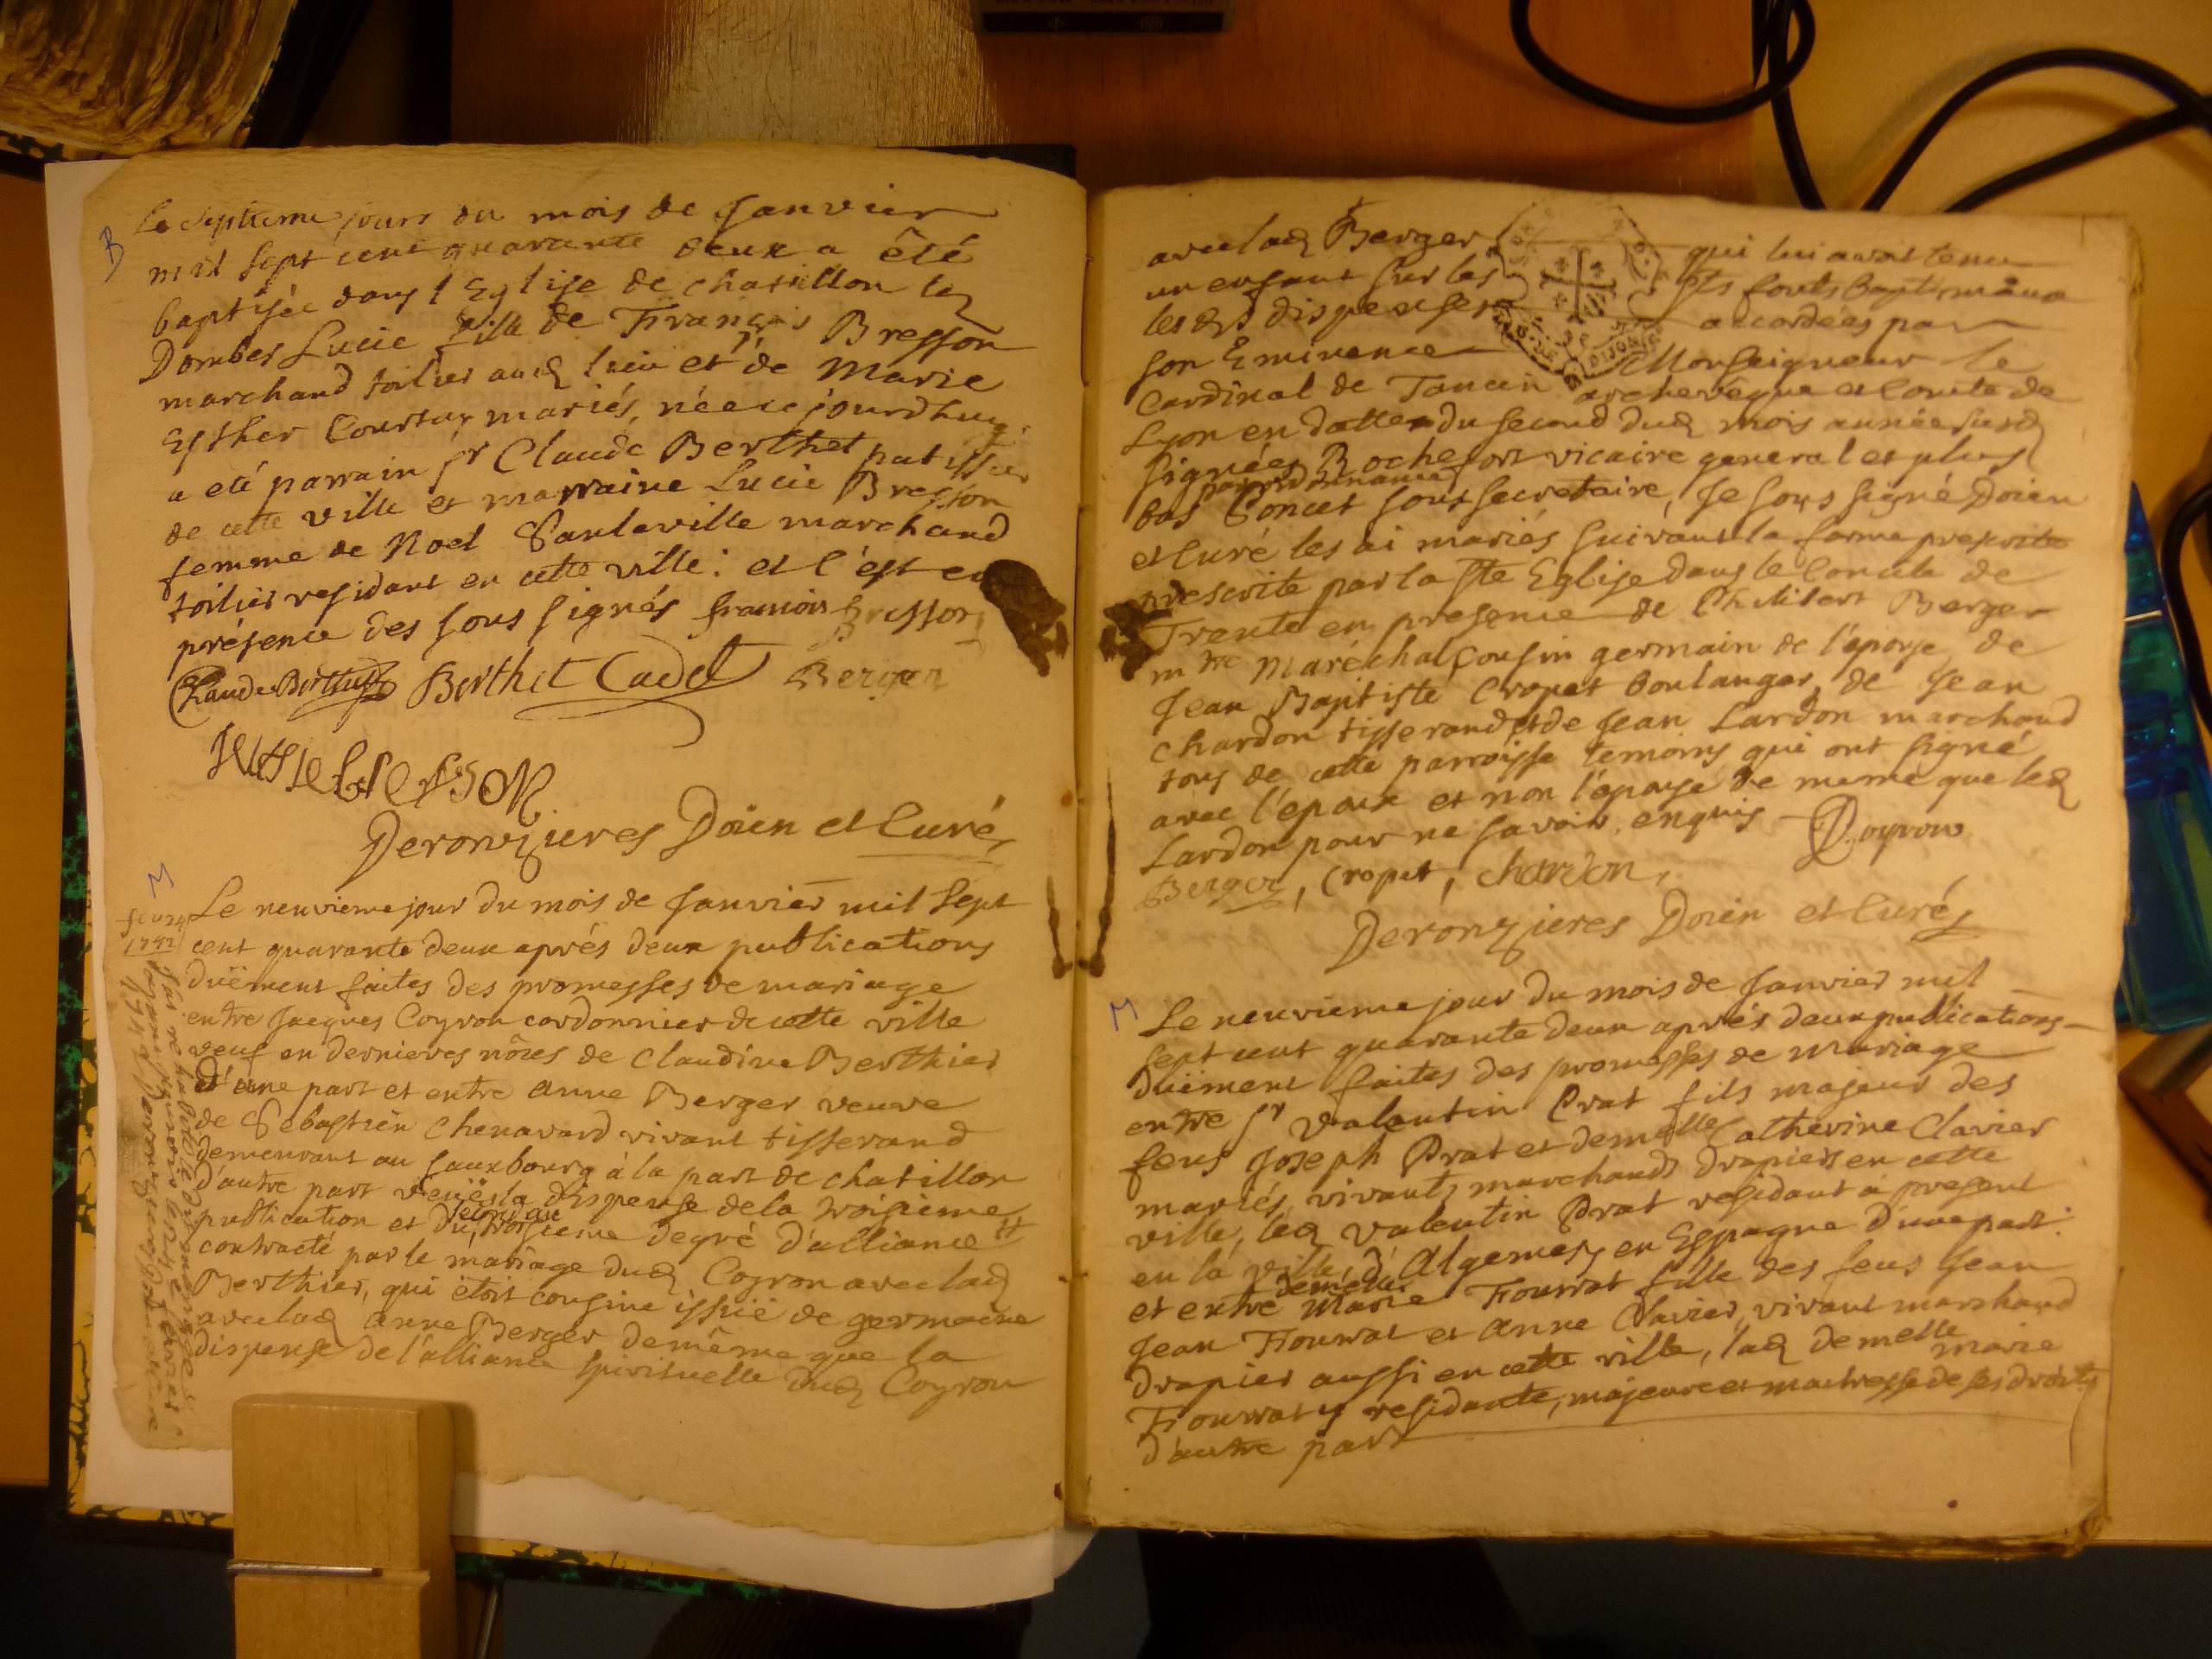 B
Le septieme jours du mois de Janvier
mil sept cent quarante deux a êté
baptisée dans l'Eglise de chatillon lez
Dombes Lucie fille de François Bresson
marchand toilier aud lieu et de Marie
Esther Courtux mariés, née ce jourdhuy
a eté parrain sr Claude Berthet patissier
de cette ville et marraine Lucie Bresson
femme de Noel Sauleville marchand
toilier residant en cette ville : et l'est en
présence des sous signés francois bresson
Claude Berthet Berthet Cadet Berger
Deronzieres Doien et Curé
M
Le neuvieme jour du mois de Janvier mil sept
cent quarante deux aprés deux publications
duëment faites des promesses de mariage
entre Jacques Coyron cordonnier de cette ville
veuf en dernieres nôces de Claudine Berthier
d'une part et entre Anne Berger veuve
de Sebastien Chenavard vivant tisserand
demeurant au fauxbourg à la part de chatillon
d'autre part veüës la dispense de la troisieme
publication et du second au troisieme degré d'alliance #
contracté par le mariage dud Coyron avec lad
Berthier, qui êtoit cousine issüe de germaine
avec lad Anne Berger de même que la
dispense de l'alliance spirituelle dud Coyron
1742
avec lad Berger qui lui avoit tenu
un enfant sur les Sts fonts baptismaux
les ds dispenses accordées par
son Eminence Monseigneur le
Cardinal de Tancin archevêque et Comte de
Lyon en datte du second dud mois année susd
signées Rochefort vicaire general et plus
bas par ordonnance Poncet sous secretaire, Je sous signé Doien
et Curé les ai mariés suivant la forme prescrite
prescrite par la Ste Eglise dans le Concile de
Trente en presence de Philibert Berger
mtre Maréchal Cousin germain de l'épouse, de
Jean Baptiste Cropet boulanger, de Jean
Chardon tisserand et de Jean Lardon marchand
tous de cette parroisse temoins qui ont signé
avec l'epoux et non l'épouse de meme que led
Lardon pour ne savoir, enquis Coyron
Berger, Cropet, chardon,
Deronzieres Doien et Curé
M
Le neuvieme jour du mois de Janvier mil
sept cent quarante deux aprés deux publications
duëment faites des promesses de mariage
entre sr Valentin Prat fils majeur des
feus Joseph Prat et demelle Catherine Clavier
mariés, vivants marchands drapiers en cette
ville, led Valentin Prat residant à present
en la ville d'Algemesy en Espagne d'une part.
et entre demelle Marie Fourrat fille des feus Jean
Jean Fourrat et Anne Clavier, vivant marchand
drapier aussi en cette ville, lad demelle marie
Fourrat y residante, majeure et maitresse de ses droits
d'autre part